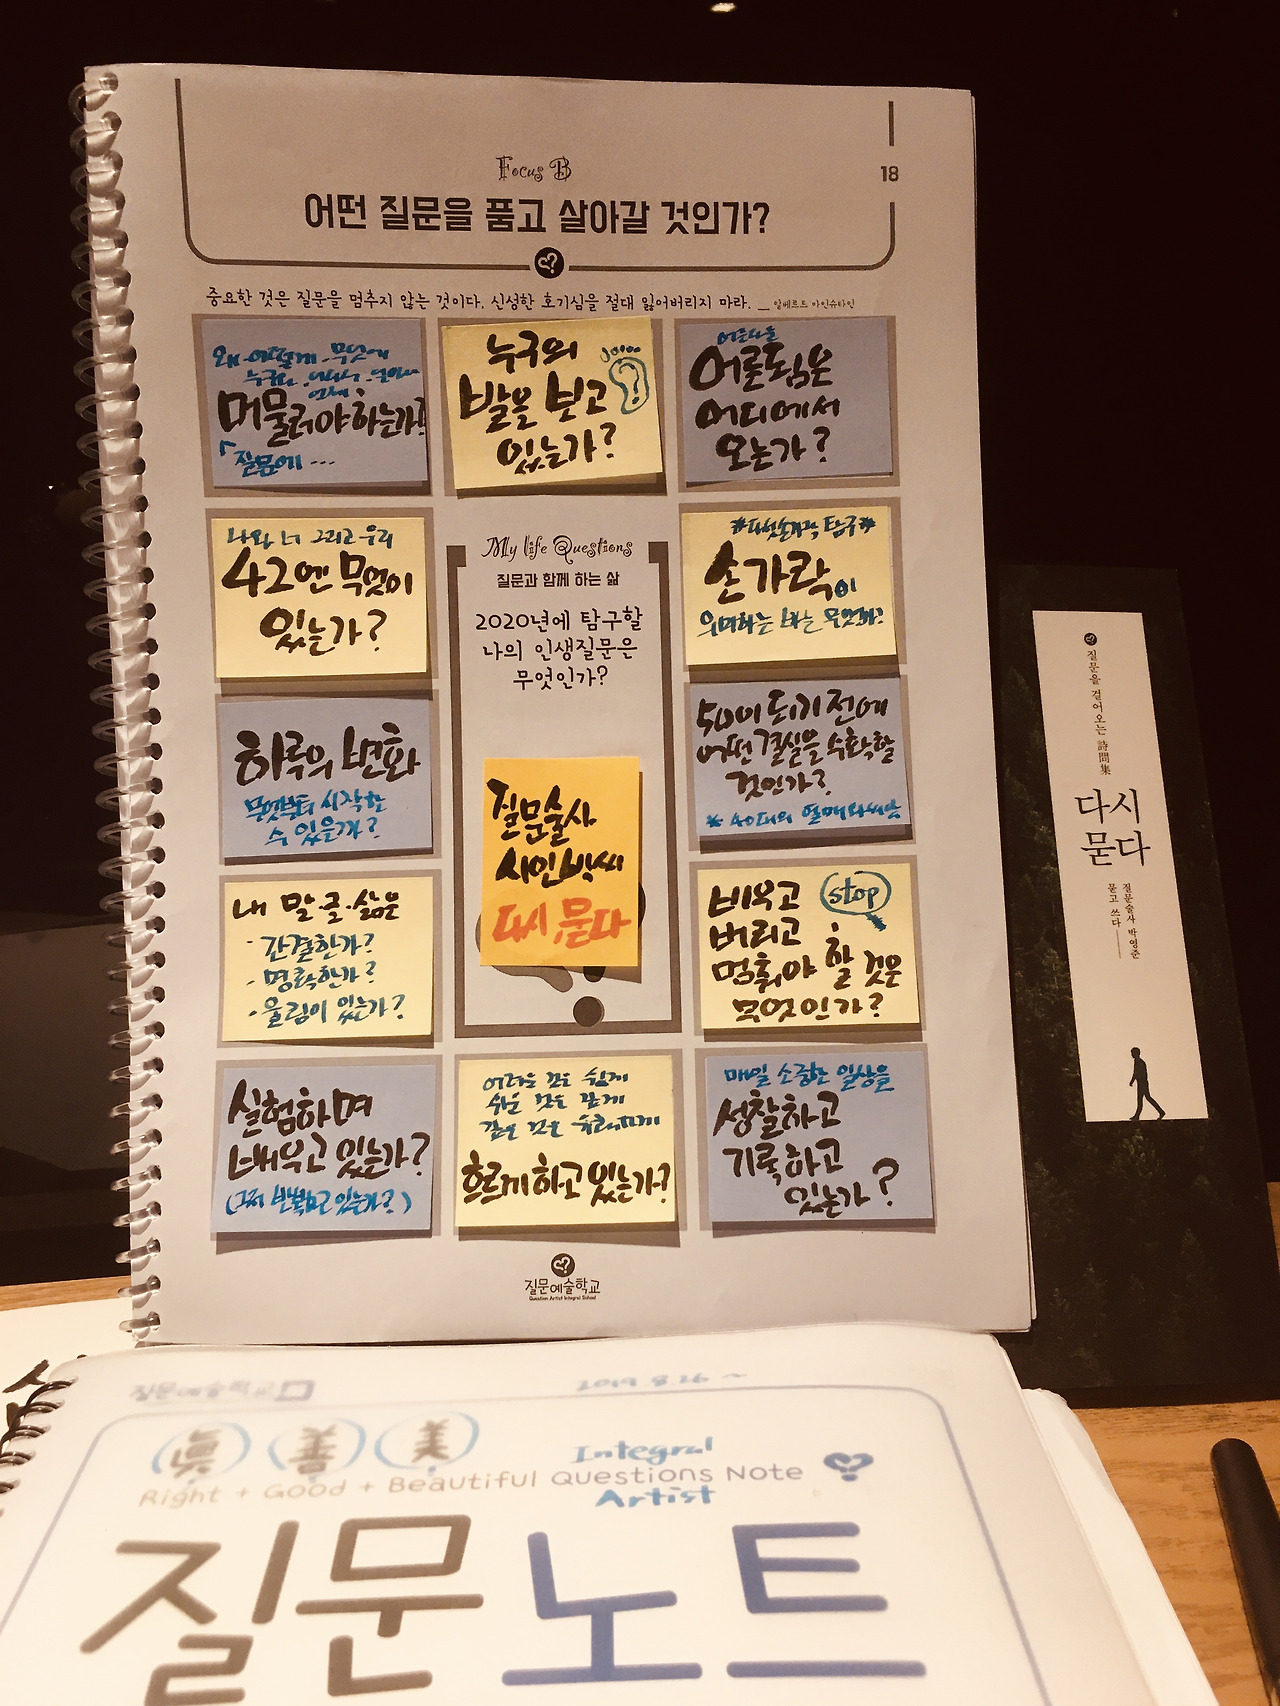 Focus B
18
어떤 질문을 품고 살아갈 것인가?
중요한 것은 질문을 멈추지 않는 것이다. 신성한 호기심을 절대 잃어버리지 마라. _ 알베르트 아인슈타인
왜·어떻게·무엇에
머물러야하는가?
「질문에 ...
누구의
발을 보고
있는가?
어른됨은
어디에서
오는가?
나와 너 그리고 우리
42엔 무엇이
있는가?
My life Questions
질문과 함께 하는 삶
2020년에 탐구할
나의 인생질문은
무엇인가?
#다섯손가락 탐구#
손가락이
의미하는 바는 무엇인가?
하루의 변화
무엇부터 시작할
수 있을까?
50이 되기 전에
어떤 결실을 수확할
것인가?
* 40대의 열매와씨앗
질문술사
시인박씨
다시, 묻다
내 말·글·삶은
· 간결한가?
· 명확한가?
· 울림이 있는가?
비우고 stop
버리고
멈춰야 할 것은
무엇인가?
실험하며
배우고 있는가?
(그저 반복하고 있는가?)
어려운 것은 쉽게
쉬운 것은 깊게
깊은 것은 유쾌하게
흐르게하고 있는가?
매일 소중한 일상을
성찰하고
기록하고
있는가?
질문예술학교
Question Artist Integral School
질문을 걸어오는 詩問集
다시
묻다
질문술사 박영준
묻고 쓰다
질문예술학교
2019. 8. 26 ~
眞 善 美
Integral
Right + Good + Beautiful Questions Note
Artist
질문노트